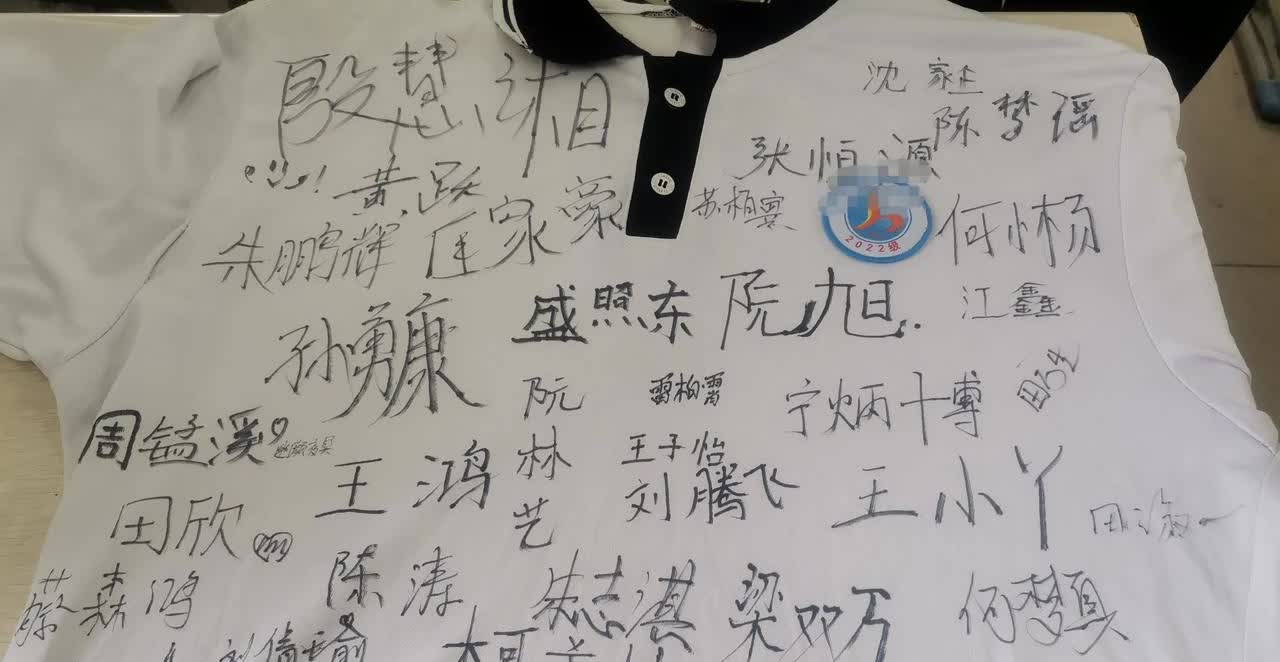 殷慧湘
沈家赴
陈梦谣
张恒源
黄跃
苏柏寰
匡家豪
朱鹏辉
2022级
何小杨
盛照东
阮旭.
江鑫
孙勇康
阮林艺
雷柏霄
宁炳博
周锰溪
王鸿
王子怡
刘腾飞
王小丫
田欣
田海一
蔡森鸿
陈涛
朱志湛
梁双万
何梦真
刘倩瑜